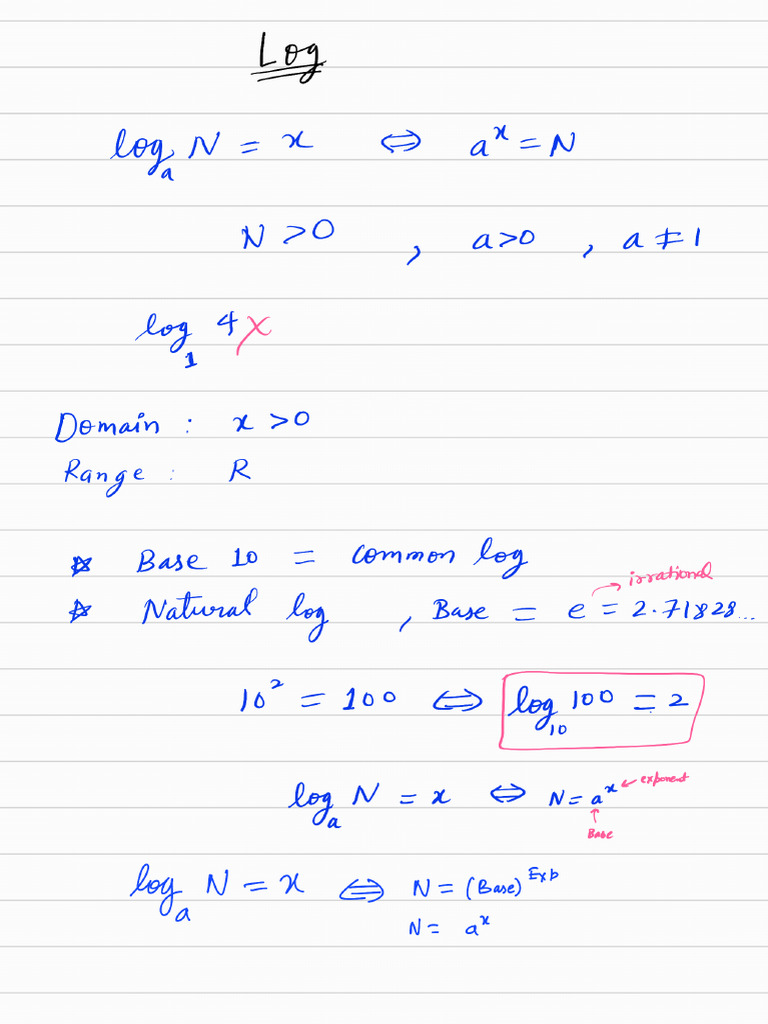 Log
logₐ N = x ⇔ aˣ = N
N > 0 , a > 0 , a ≠ 1
log₁ 4 ✗
Domain : x > 0
Range : R
☆ Base 10 = common log
irrational
☆ Natural log , Base = e = 2.71828...
10² = 100 ⇔ log₁₀ 100 = 2
logₐ N = x ⇔ N = aˣ ← exponent
Base
logₐ N = x ⇔ N = (Base)ᴱˣᵖ
N = aˣ